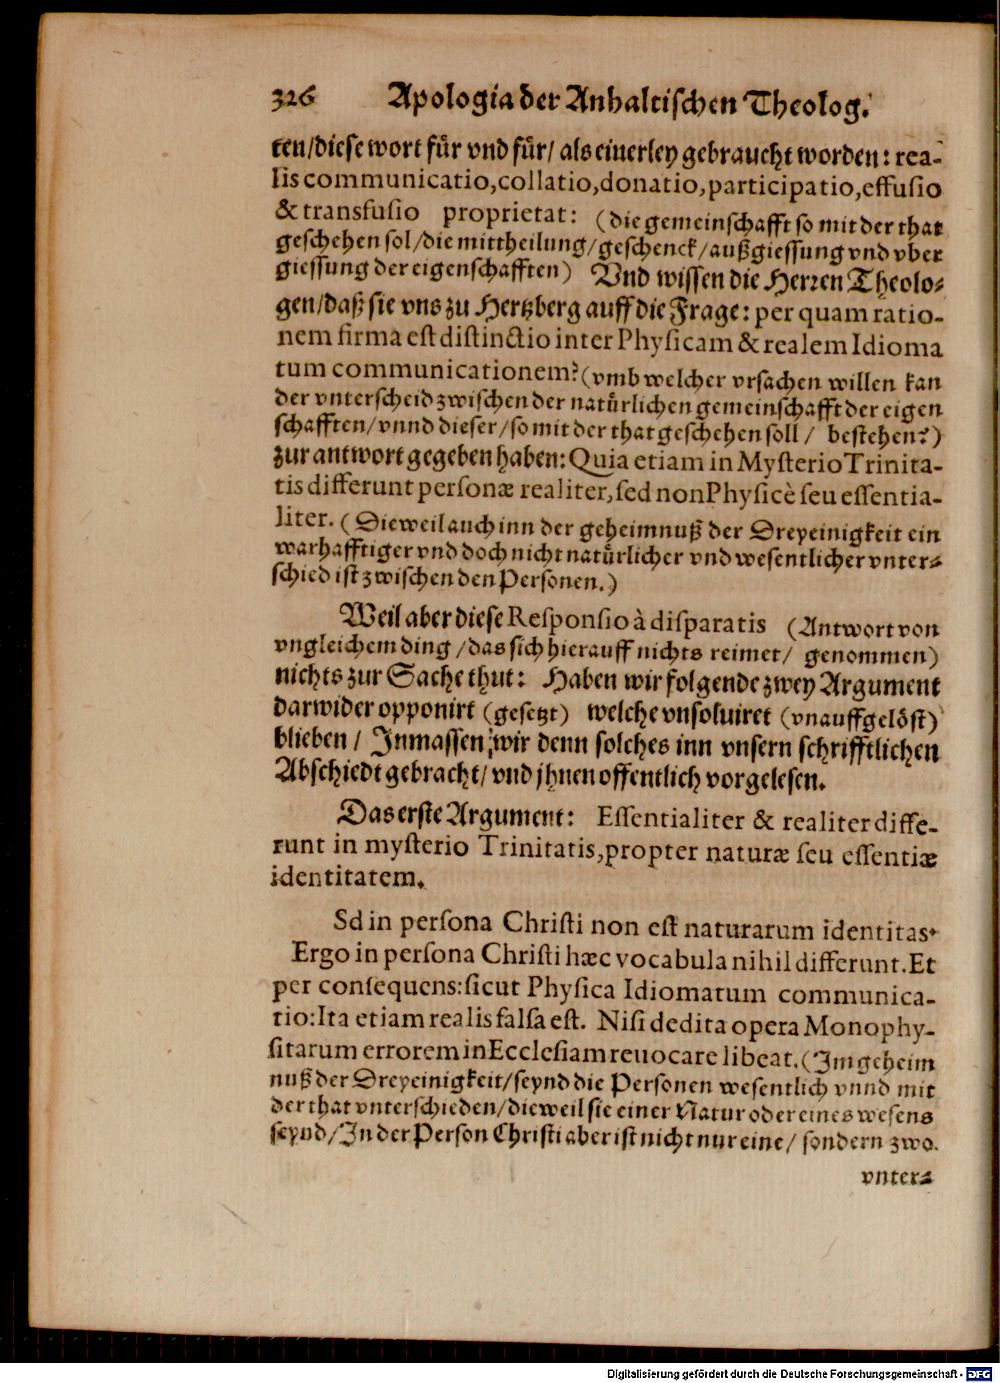 326 Apologia der Anhaltischen Theolog.
ten/diese wort fuͤr vnd fuͤr/ als einerley gebraucht worden: rea-
lis communicatio, collatio, donatio, participatio, effusio
& transfusio proprietat: (die gemeinschafft so mit der that
geschehen sol/die mittheilung/geschenck/außgiessung vnd vber
giessung der eigenschafften) Vnd wissen die Herren Theolo-
gen/daß sie vns zu Hertzberg auff die Frage: per quam ratio-
nem firma est distinctio inter Physicam & realem Idioma
tum communicationem? (vmb welcher vrsachen willen kan
der vnterscheid zwischen der natuͤrlichen gemeinschafft der eigen
schafften/vnnd dieser/so mit der that geschehen soll / bestehen?)
zur antwort gegeben haben: Quia etiam in Mysterio Trinita-
tis differunt personæ realiter, sed non Physicè seu essentia-
liter. (Dieweil auch inn der geheimnuß der Dreyeinigkeit ein
warhafftiger vnd doch nicht natuͤrlicher vnd wesentlicher vnter-
schied ist zwischen den Personen.)
Weil aber diese Responsio à disparatis (Antwort von
vngleichem ding /das sich hierauff nichts reimet/ genommen)
nichts zur Sache thut: Haben wir folgende zwey Argument
darwider opponirt (gesetzt) welche vnsoluiret (vnauffgeloͤst)
blieben / Inmassen wir denn solches inn vnsern schrifftlichen
Abschiedt gebracht/ vnd jhnen offentlich vorgelesen.
Das erste Argument: Essentialiter & realiter diffe-
runt in mysterio Trinitatis, propter naturæ seu essentiæ
identitatem.
Sd in persona Christi non est naturarum identitas.
Ergo in persona Christi hæc vocabula nihil differunt. Et
per consequens: sicut Physica Idiomatum communica-
tio: Ita etiam realis falsa est. Nisi dedita opera Monophy-
sitarum errorem in Ecclesiam reuocare libeat. (Im geheim
nuß der Dreyeinigkeit/seynd die Personen wesentlich vnnd mit
der that vnterschieden/dieweil sie einer Natur oder eines wesens
seynd/In der Person Christi aber ist nicht nur eine/ sondern zwo.
vnter-
Digitalisierung gefördert durch die Deutsche Forschungsgemeinschaft - DFG